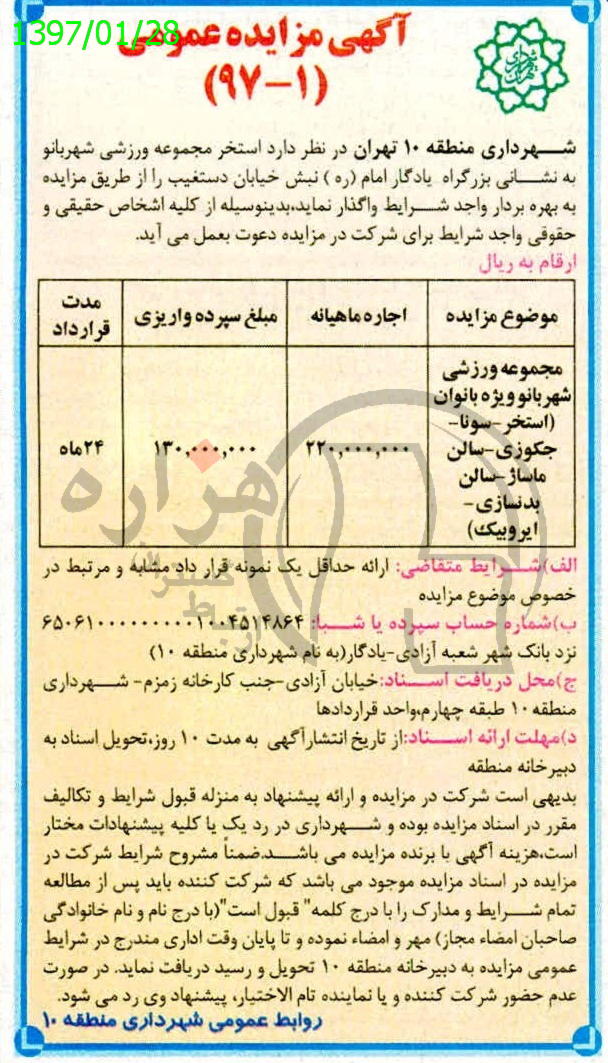 1397/01/28
آگهی مزایده عمومی
(۹۷-۱)
شهرداری منطقه ۱۰ تهران در نظر دارد استخر مجموعه ورزشی شهربانو
به نشانی بزرگراه یادگار امام (ره) نبش خیابان دستغیب را از طریق مزایده
به بهره بردار واجد شرایط واگذار نماید،بدینوسیله از کلیه اشخاص حقیقی و
حقوقی واجد شرایط برای شرکت در مزایده دعوت بعمل می آید.
ارقام به ریال
موضوع مزایده
اجاره ماهیانه
مبلغ سپرده واریزی
مدت
قرارداد
مجموعه ورزشی
شهربانو ویژه بانوان
(استخر-سونا-
جکوزی-سالن
ماساژ-سالن
بدنسازی-
ایروبیک)
۲۲۰,۰۰۰,۰۰۰
۱۳۰,۰۰۰,۰۰۰
۲۴ماه
الف)شرایط متقاضی: ارائه حداقل یک نمونه قرار داد مشابه و مرتبط در
خصوص موضوع مزایده
ب)شماره حساب سپرده یا شبا: ۶۵۰۶۱۰۰۰۰۰۰۰۰۰۰۱۰۰۴۵۱۴۸۶۴
نزد بانک شهر شعبه آزادی-یادگار(به نام شهرداری منطقه ۱۰)
ج)محل دریافت اسناد:خیابان آزادی-جنب کارخانه زمزم- شهرداری
منطقه ۱۰ طبقه چهارم،واحد قراردادها
د)مهلت ارائه اسناد:از تاریخ انتشارآگهی به مدت ۱۰ روز،تحویل اسناد به
دبیرخانه منطقه
بدیهی است شرکت در مزایده و ارائه پیشنهاد به منزله قبول شرایط و تکالیف
مقرر در اسناد مزایده بوده و شهرداری در رد یک یا کلیه پیشنهادات مختار
است،هزینه آگهی با برنده مزایده می باشد.ضمناً مشروح شرایط شرکت در
مزایده در اسناد مزایده موجود می باشد که شرکت کننده باید پس از مطالعه
تمام شرایط و مدارک را با درج کلمه" قبول است"(با درج نام و نام خانوادگی
صاحبان امضاء مجاز) مهر و امضاء نموده و تا پایان وقت اداری مندرج در شرایط
عمومی مزایده به دبیرخانه منطقه ۱۰ تحویل و رسید دریافت نماید. در صورت
عدم حضور شرکت کننده و یا نماینده تام الاختیار، پیشنهاد وی رد می شود.
روابط عمومی شهرداری منطقه ۱۰
هزاره